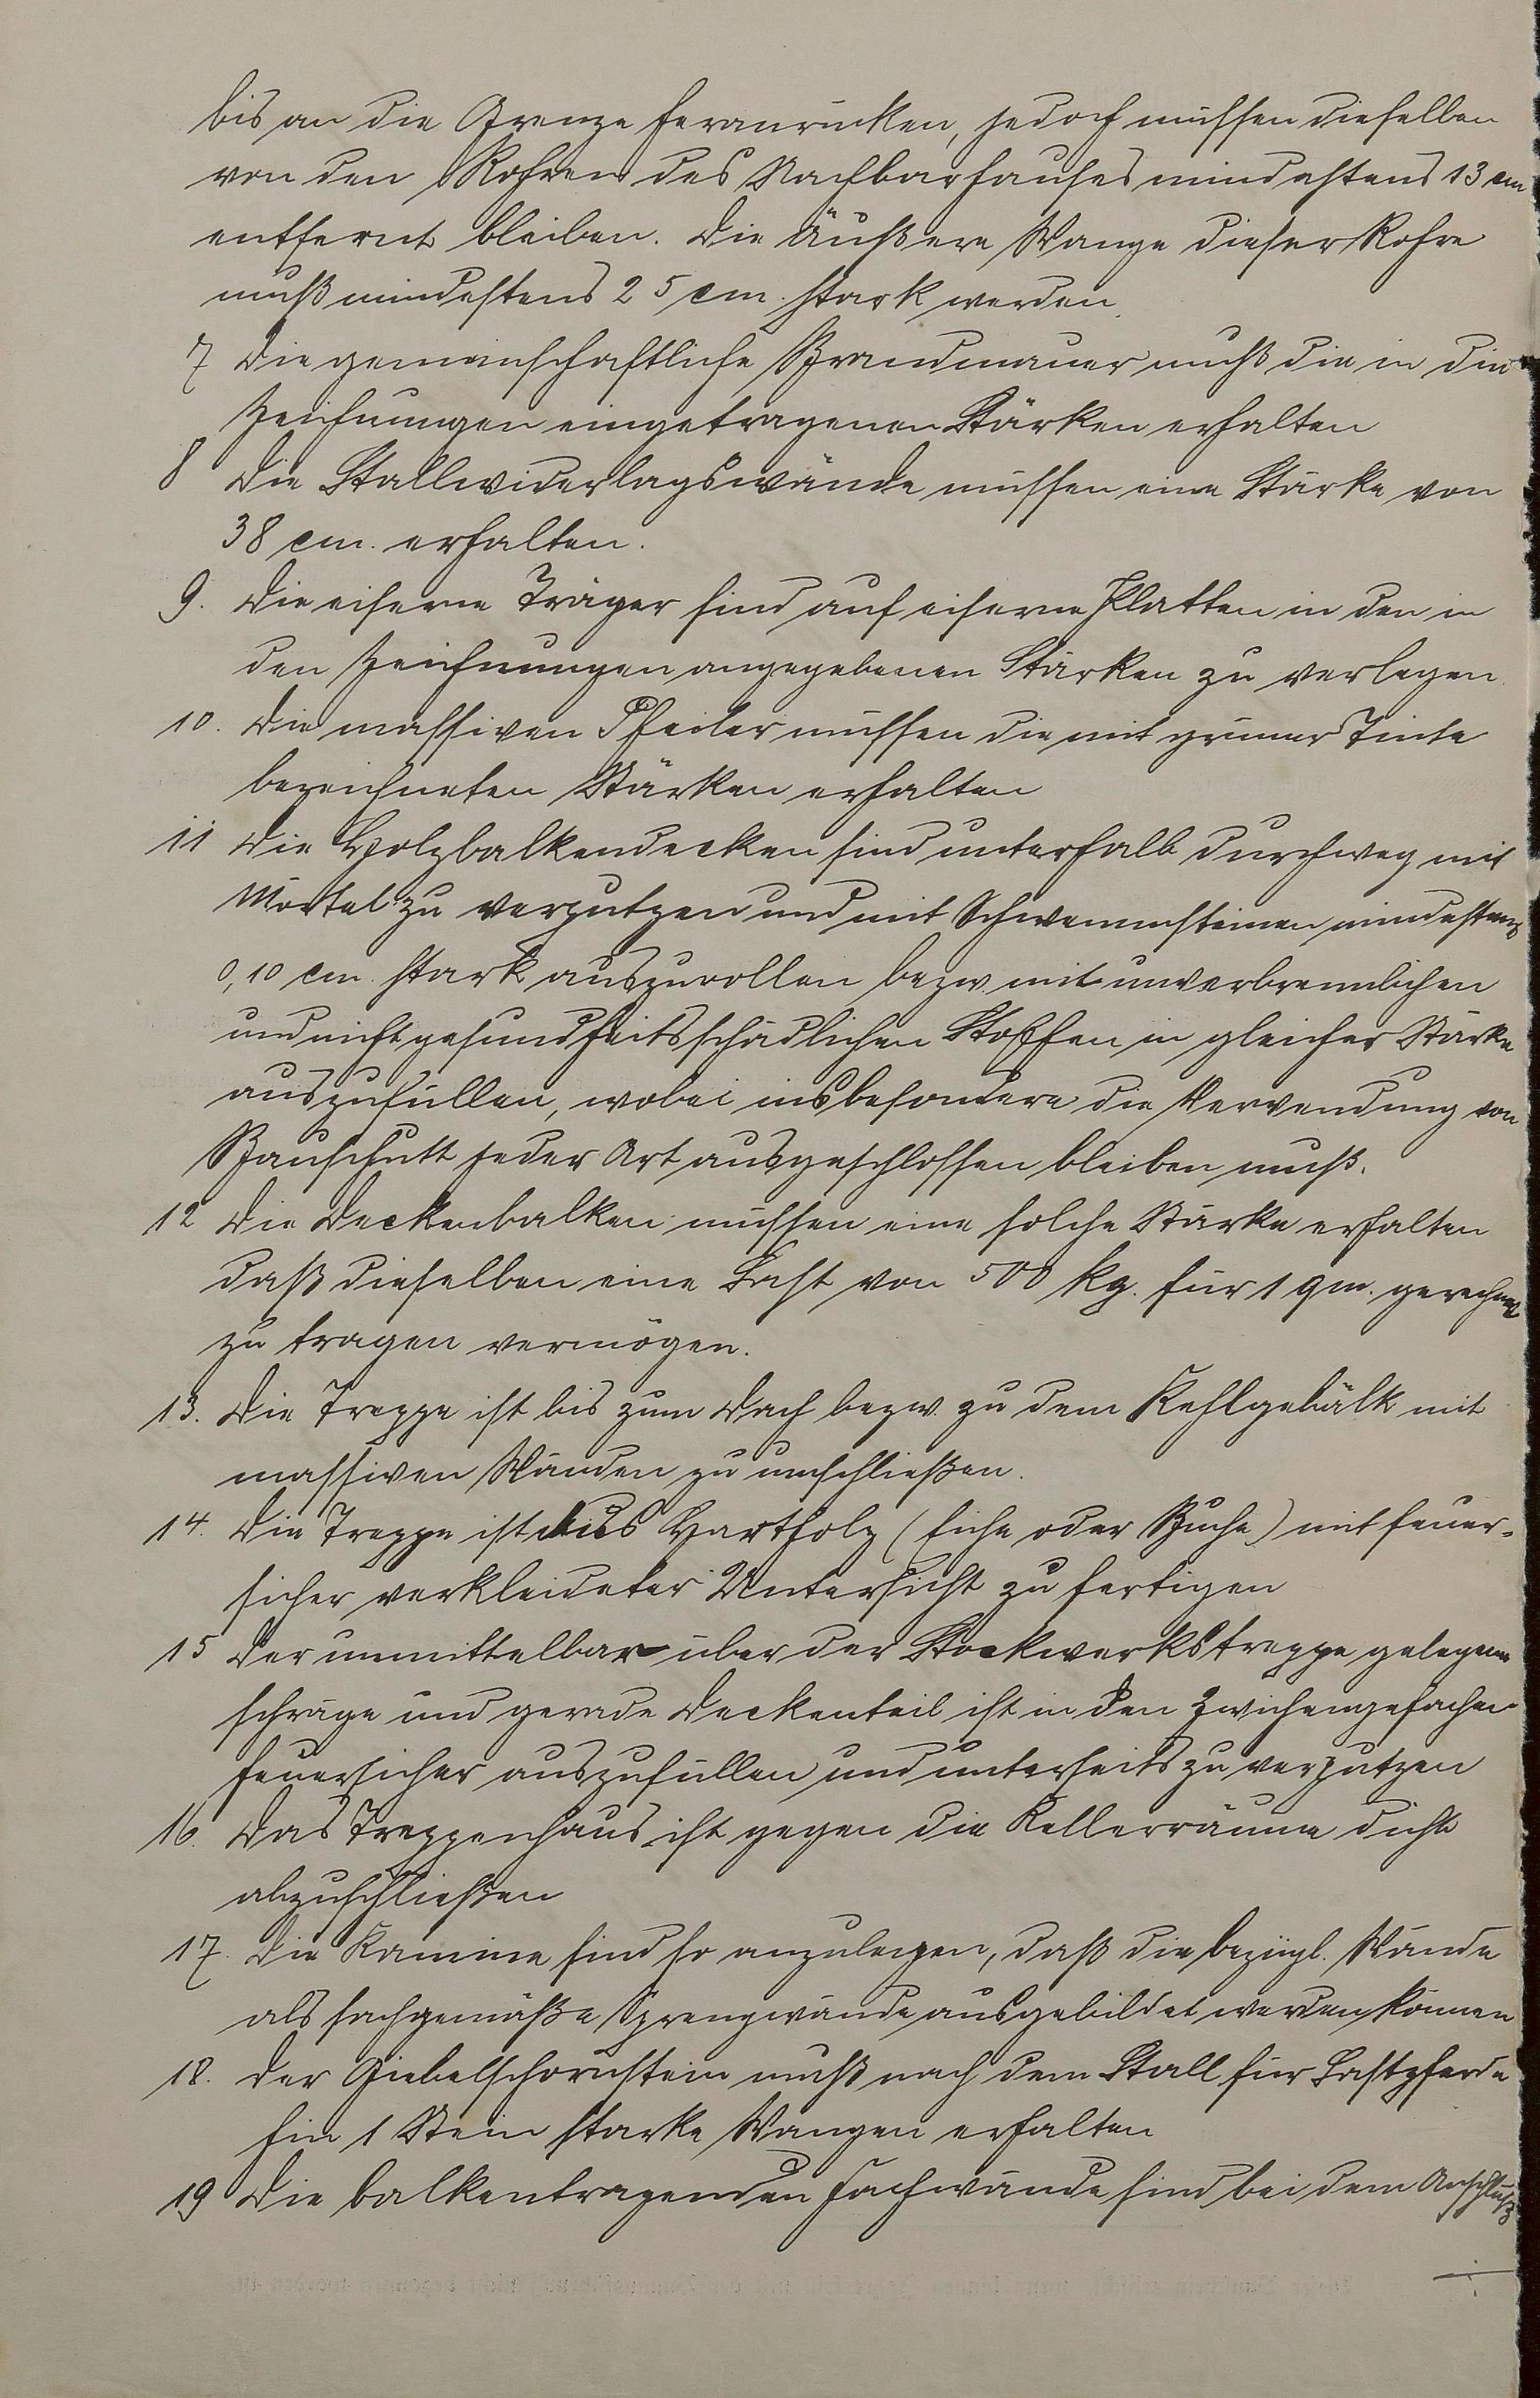 bis an die Grenze heranrücken, jedoch müssen dieselben
von den Rohren des Nachbarhauses mindestens 13 cm
entfernt bleiben. Die äußere Wange dieser Rohre
muß mindestens 25 cm. stark werden.
7 Die gemeinschaftliche Brandmauer muß die in die
Zeichnungen eingetragenen Stärken erhalten
8 Die Stallwiderlagswände müssen eine Stärke von
38 cm. erhalten.
9. Die eiserne Träger sind auf eiserne Platten in den in
den Zeichnungen angegebenen Stärken zu verlegen.
10. Die massiven Pfeiler müssen die mit grüner Tinte
bezeichneten Stärken erhalten
11 Die Holzbalkendecken sind unterhalb durchweg mit
Mörtel zu verputzen und mit Schwemmsteinen mindestens
0,10 cm. stark auszurollen bezw. mit unverbrennlichen
und nicht gesundheitsschädlichen Stoffen in gleicher Stärke
auszufüllen, wobei insbesondere die Verwendung von
Bauschutt jeder Art ausgeschlossen bleiben muß.
12 Die Deckenbalken müssen eine solche Stärke erhalten
daß dieselben eine Last von 500 kg. für 1 qm. gerechnet
zu tragen vermögen.
13. Die Treppe ist bis zum Dach bezw. zu dem Kehlgebälk mit
massiven Wänden zu umschließen.
14. Die Treppe ist aus Hartholz (Eiche oder Buche) mit feuer-
sicher verkleideter Untersicht zu fertigen
15 Der unmittelbar über der Stockwerkstreppe gelegene
schräge und gerade Deckenteil ist in den Zwichengefachen
feuersicher auszufüllen und unterseits zu verputzen
16. Das Treppenhaus ist gegen die Kellerräume dicht
abzuschließen
17. Die Kamine sind so anzulegen, daß die bezügl. Wände
als sachgemäße Sprengwände ausgebildet werden können
18. Der Giebelschornstein muß nach dem Stall für Lastpferde
hin 1 Stein starke Wangen erhalten
19 Die balkentragenden Fachwände sind bei dem Anschluß